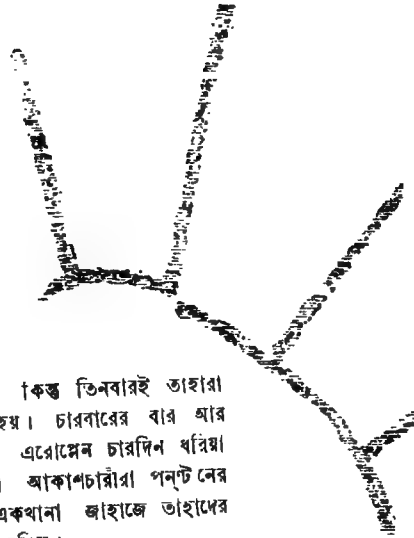 কিন্তু তিনবারই তাহারা
হয়। চারবারের বার আর
এরোপ্লেন চারদিন ধরিয়া
। আকাশচারীরা পন্ট নের
একখানা জাহাজে তাহাদের